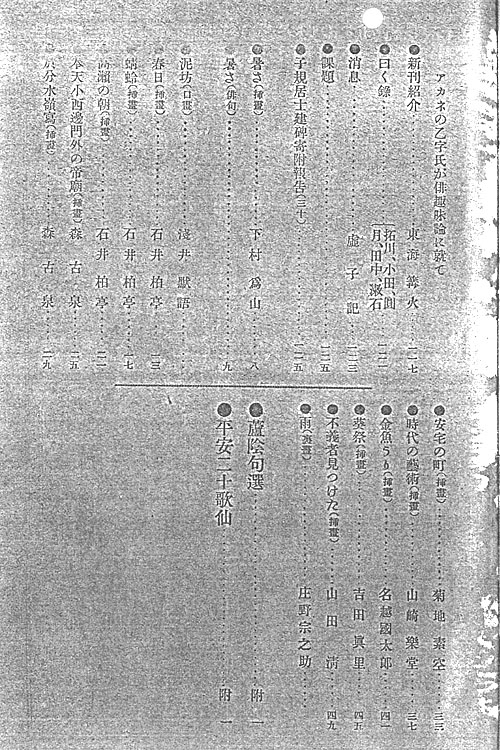 アカネの乙字氏が俳趣味論に就て
●新刊紹介………東海篝火…二一七
●曰く錄………拓川、小田、圓月、田中、漱石…一二二
●消息………虛子記…一二三
●課題………一二五
●子規居士建碑寄附報告(三十)………一二五
●暑さ(挿畫)………下村爲山…八
●暑さ(俳句)………九
●泥坊(口畫)………淺井默語
●春日(挿畫)………石井柏亭…一三
●蜻蛉(挿畫)………石井柏亭…一七
高瀨の朝(挿畫)………石井柏亭…二一
奉天小西邊門外の帝廟(挿畫)…森古泉…二五
分水嶺寫(挿畫)………森古泉…二九
●安宅の町(挿畫)………菊地素空…三三
●時代の藝術(挿畫)………山崎樂堂…三七
●金魚うり(挿畫)………名越國太郎…四一
●葵祭(挿畫)………吉田眞里…四五
●不義者見つけた(挿畫)………山田淸…四九
●雨(裏畫)………庄野宗之助
●蘆陰句選………附一
●平安二十歌仙………附一